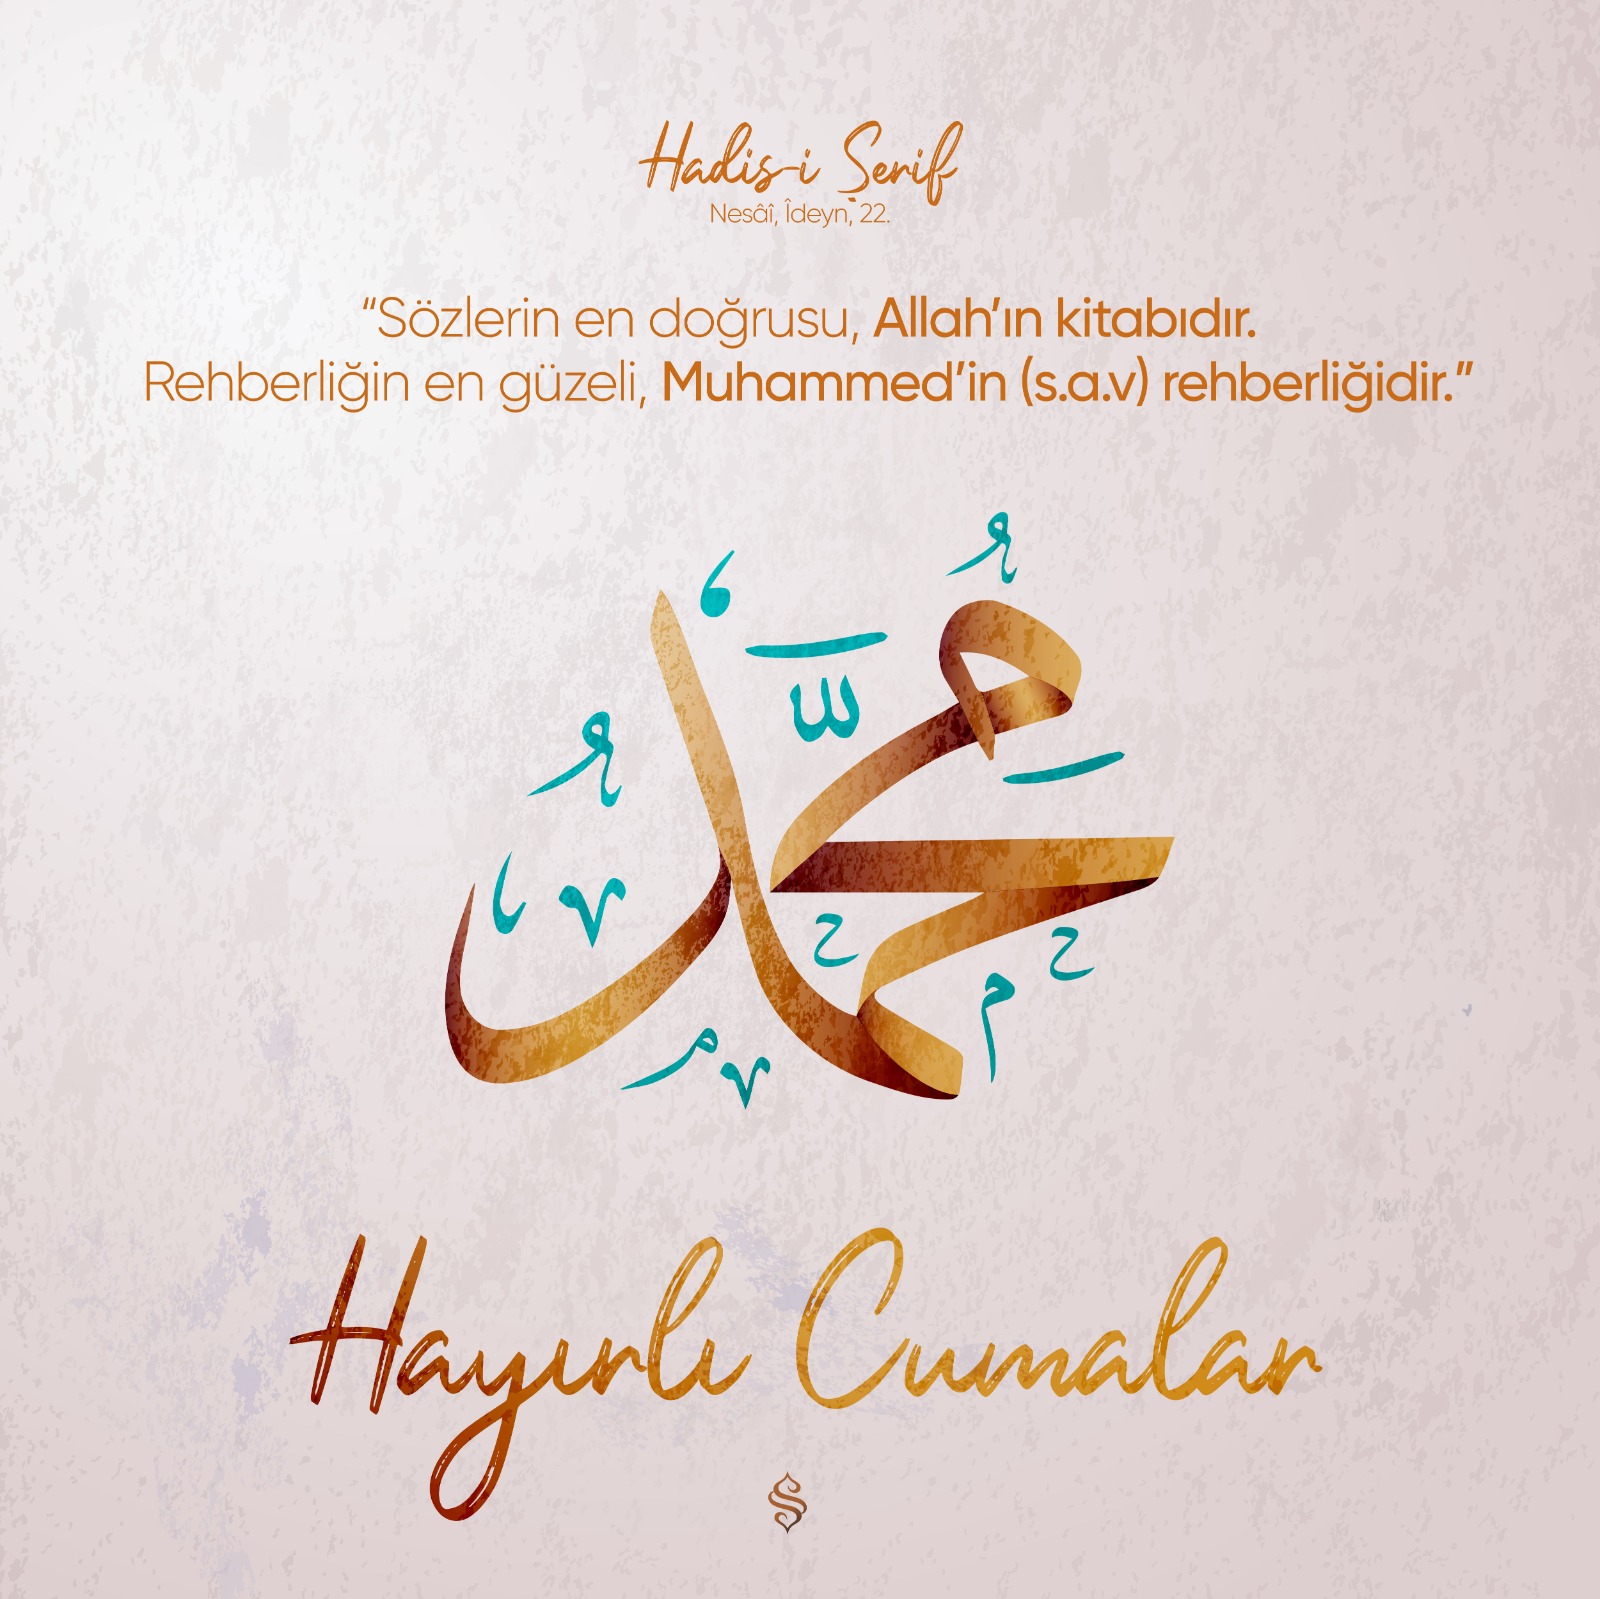 Hadis-i Şerif
Nesâî, Îdeyn, 22.
“Sözlerin en doğrusu, Allah’ın kitabıdır.
Rehberliğin en güzeli, Muhammed’in (s.a.v) rehberliğidir.”
محمد
Hayırlı Cumalar